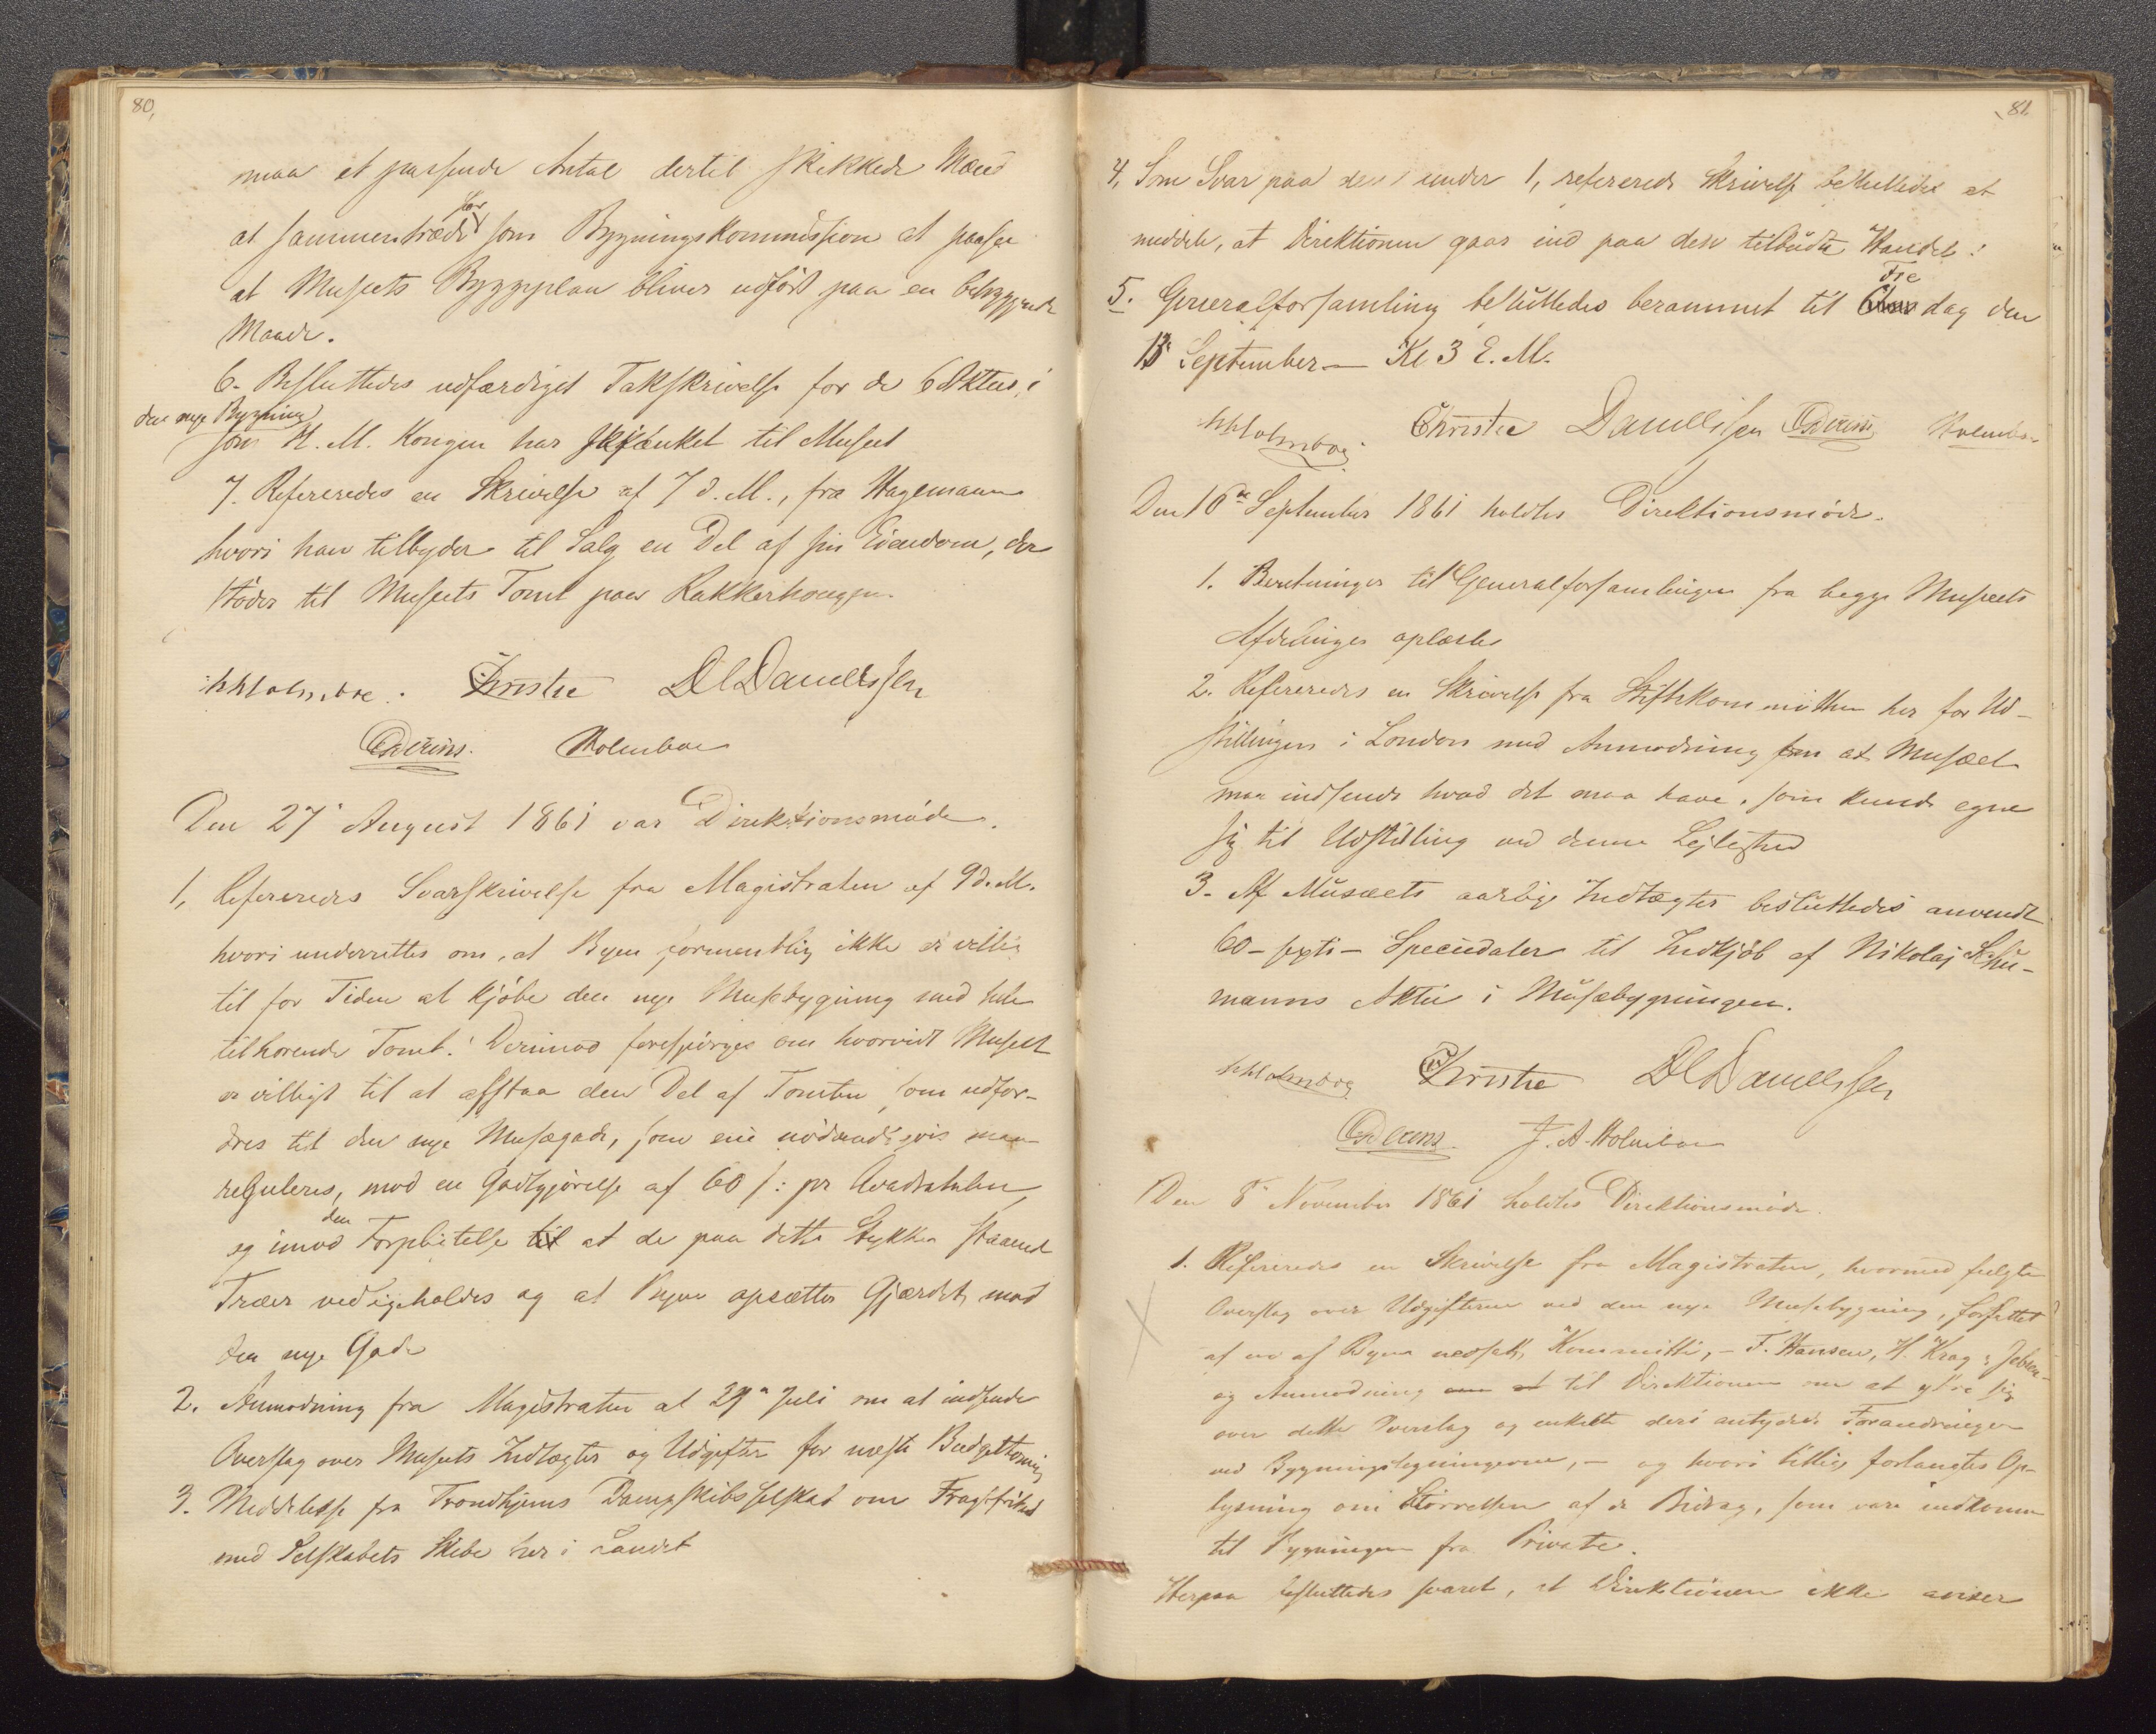 80,
maa et passende Antal dertil skikkede Mænd
at sammentræde for som Bygningskommission at paasee
at Museets Byggeplan bliver udført paa en betryggende
Maade.
6. Besluttedes udfærdiget Takskrivelse for de 6 Aktier i
den nye Bygning
som H. M. Kongen har skjænket til Museet
7. Refereredes en Skrivelse af 7 d. M., fra Hagemann
hvori han tilbyder til Salg en Del af sin Eiendom, der
støder til Museets Tomt paa Rakkerhougen.
Christie DCDanielssen
Holmboe
Den 27' August 1861 var Direktionsmøde.
1, Refereredes Svarskrivelse fra Magistraten af 9 d. M.
hvori underrettes om, at Byen formentlig ikke er villig
til for Tiden at kjøbe den nye Musæbygning med hele
tilhørende Tomt. Derimod forespørges om hvorvidt Museet
er villigt til at afstaa den Del af Tomten, som udfor-
dres til den nye Musægade, som nødvendigvis maa
reguleres, mod en Godtgjørelse af 60 s: pr Qvadratalen,
og imod den Forpligtelse til at de paa dette Stykke staaende
Træer vedligeholdes og at Byen opsætter Gjærdet mod
den nye Gade
2. Anmodning fra Magistraten af 29' Juli om at indsende
Overslag over Museets Indtægter og Udgifter for næste Budgettermin
3. Meddelelse fra Trondhjems Dampskibsselskab om Fragtfrihed
med Selskabets Skibe her i Landet
81,
4, Som Svar paa den under 1, refererede Skrivelse besluttedes at
meddele, at Direktionen gaar ind paa den tilbudte Handel.
5. Generalforsamling besluttedes berammet til Fredag den
13' September — Kl 3 E. M.
Christie Danielssen Holmboe
Den 10de September 1861 holdtes Direktionsmøde.
1. Beretninger til Generalforsamlingen fra begge Museets
Afdelinger oplæstes
2. Refereredes en Skrivelse fra Stiftskommitteen her for Ud-
stillingen i London med Anmodning om at Musæet
maa indsende hvad det maa have, som kunde egne
sig til Udstilling ved denne Lejlighed
3. Af Musæets aarlige Indtægter besluttedes anvendt
60 – sexti – Speciedaler til Indkjøb af Nikolaj Schu-
manns Aktie i Musæbygningen.
Christie DCDanielssen
J. A. Holmboe
Den 8' November 1861 holdtes Direktionsmøde.
1. Refereredes en Skrivelse fra Magistraten, hvormed fulgte
Overslag over Udgifterne ved den nye Musæbygning, forfattet
af en af Byen nedsat Kommitte, – F. Hansen, H. Krag, Jebsen –
og Anmodning om at til Direktionen om at yttre sig
over dette Overslag og enkelte deri antydede Forandringer
ved Bygningstegningerne, – og hvori tillige forlangtes Op-
lysning om Størrelsen af de Bidrag, som vare indkomne
til Bygningen fra Private.
Herpaa besluttedes svaret, at Direktionen ikke anser